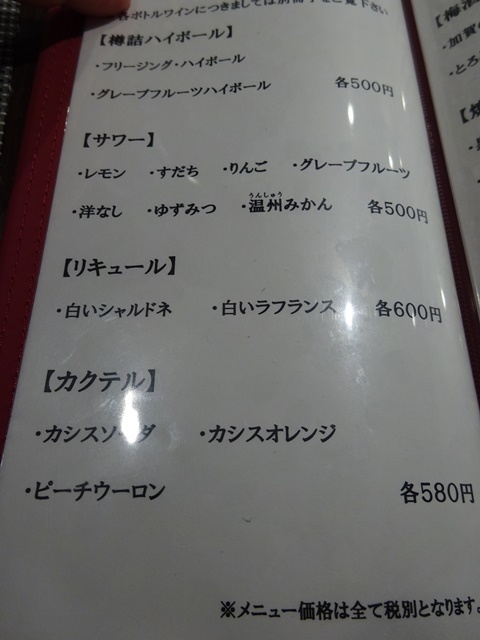 各ボトルワインにつきましては別冊子をご覧下さい
【樽詰ハイボール】
・フリージング・ハイボール
・グレープフルーツハイボール 各500円
【サワー】
・レモン ・すだち ・りんご ・グレープフルーツ
・洋なし ・ゆずみつ ・温州みかん 各500円
うんしゅう
【リキュール】
・白いシャルドネ ・白いラフランス 各600円
【カクテル】
・カシスソーダ ・カシスオレンジ
・ピーチウーロン 各580円
※メニュー価格は全て税別となります。
【梅酒
・加賀の
・とろ